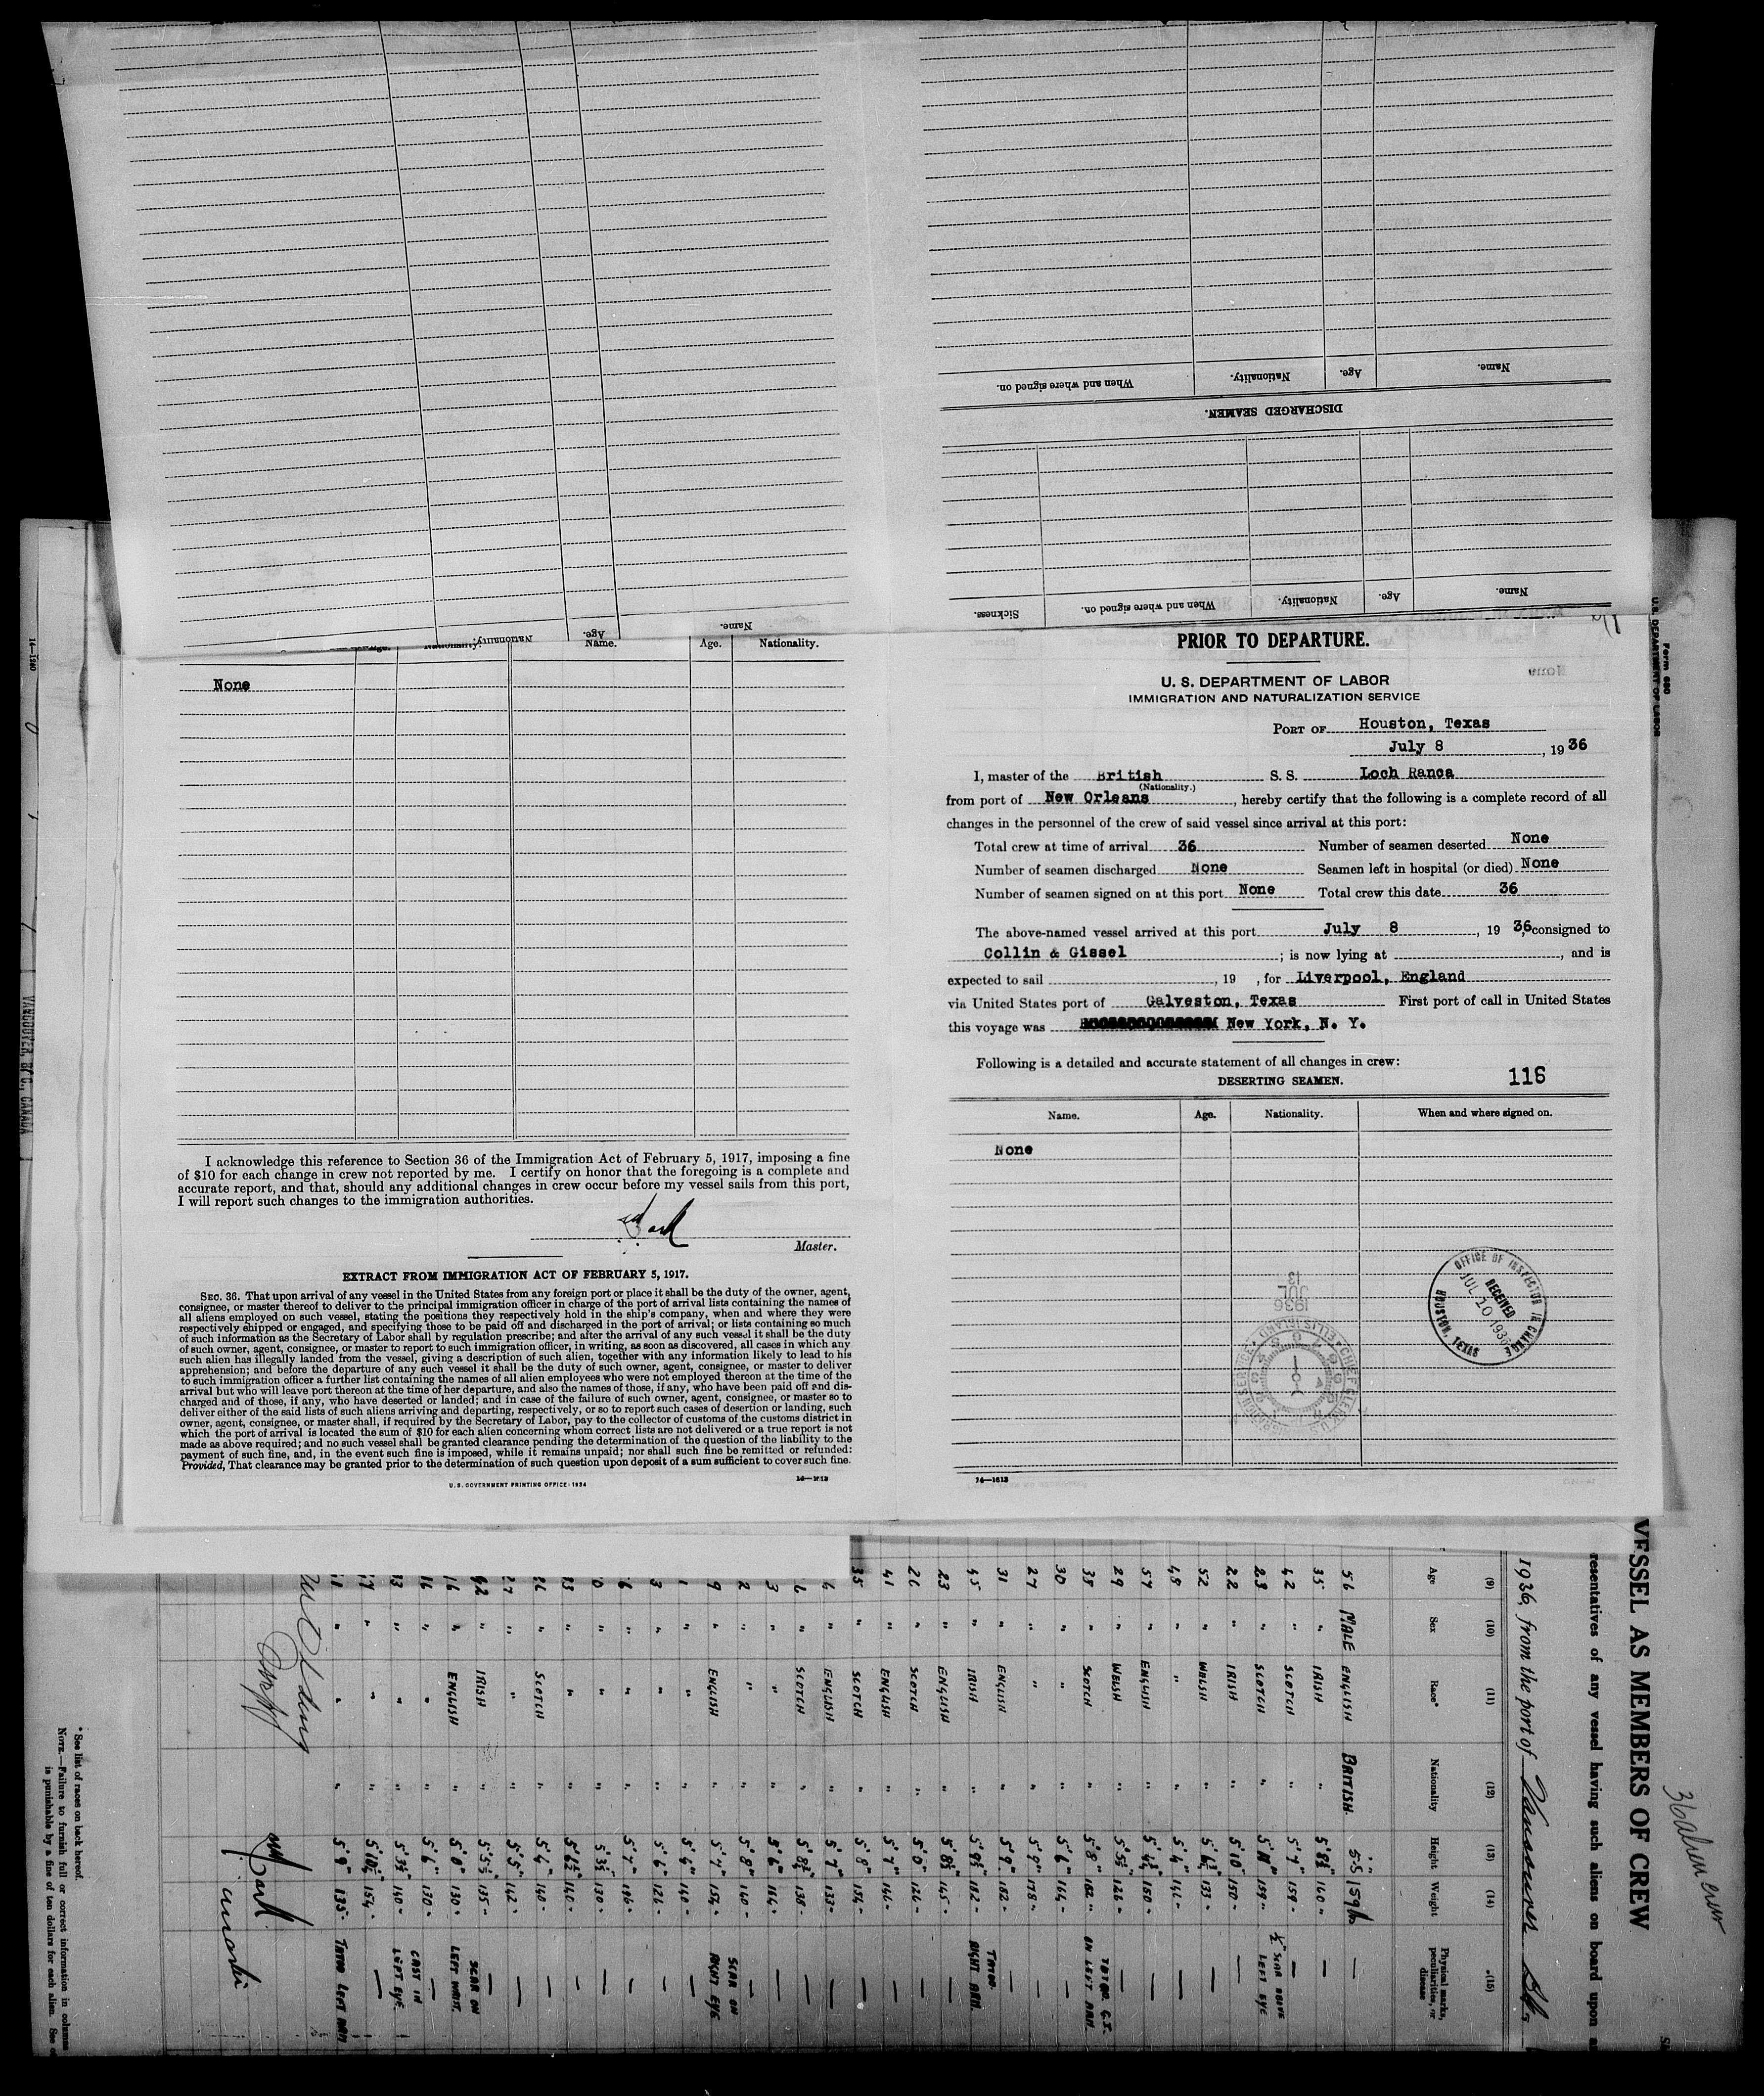 When and where signed on.
Nationality.
Age.
Name.
DISCHARGED SEAMEN.
Sickness.
When and where signed on.
Nationality.
Age.
Name.
Nationality.
Age.
Name.
Name.
Age.
Nationality.
None
I acknowledge this reference to Section 36 of the Immigration Act of February 5, 1917, imposing a fine
of $10 for each change in crew not reported by me. I certify on honor that the foregoing is a complete and
accurate report, and that, should any additional changes in crew occur before my vessel sails from this port,
I will report such changes to the immigration authorities.
Master.
EXTRACT FROM IMMIGRATION ACT OF FEBRUARY 5, 1917.
SEC. 36. That upon arrival of any vessel in the United States from any foreign port or place it shall be the duty of the owner, agent,
consignee, or master thereof to deliver to the principal immigration officer in charge of the port of arrival lists containing the names of
all aliens employed on such vessel, stating the positions they respectively hold in the ship's company, when and where they were
respectively shipped or engaged, and specifying those to be paid off and discharged in the port of arrival; or lists containing so much
of such information as the Secretary of Labor shall by regulation prescribe; and after the arrival of any such vessel it shall be the duty
of such owner, agent, consignee, or master to report to such immigration officer, in writing, as soon as discovered, all cases in which any
such alien has illegally landed from the vessel, giving a description of such alien, together with any information likely to lead to his
apprehension; and before the departure of any such vessel it shall be the duty of such owner, agent, consignee, or master to deliver
to such immigration officer a further list containing the names of all alien employees who were not employed thereon at the time of the
arrival but who will leave port thereon at the time of her departure, and also the names of those, if any, who have been paid off and dis-
charged and of those, if any, who have deserted or landed; and in case of the failure of such owner, agent, consignee, or master so to
deliver either of the said lists of such aliens arriving and departing, respectively, or so to report such cases of desertion or landing, such
owner, agent, consignee, or master shall, if required by the Secretary of Labor, pay to the collector of customs of the customs district in
which the port of arrival is located the sum of $10 for each alien concerning whom correct lists are not delivered or a true report is not
made as above required; and no such vessel shall be granted clearance pending the determination of the question of the liability to the
payment of such fine, and, in the event such fine is imposed, while it remains unpaid; nor shall such fine be remitted or refunded:
Provided, That clearance may be granted prior to the determination of such question upon deposit of a sum sufficient to cover such fine.
U. S. GOVERNMENT PRINTING OFFICE: 1934
14—1613
PRIOR TO DEPARTURE.
U. S. DEPARTMENT OF LABOR
IMMIGRATION AND NATURALIZATION SERVICE
PORT OF Houston, Texas
July 8, 1936
I, master of the British S. S. Loch Ranca
(Nationality.)
from port of New Orleans, hereby certify that the following is a complete record of all
changes in the personnel of the crew of said vessel since arrival at this port:
Total crew at time of arrival 36 Number of seamen deserted None
Number of seamen discharged None Seamen left in hospital (or died) None
Number of seamen signed on at this port None Total crew this date 36
The above-named vessel arrived at this port July 8, 1936, consigned to
Collin & Gissel; is now lying at , and is
expected to sail , 19 , for Liverpool, England
via United States port of Galveston, Texas First port of call in United States
this voyage was New York, N. Y.
Following is a detailed and accurate statement of all changes in crew:
DESERTING SEAMEN.
116
Name. Age. Nationality. When and where signed on.
None
OFFICE OF INSPECTOR IN CHARGE
RECEIVED
JUL 10 1936
HOUSTON, TEXAS
1936
JUL
13
14—1613
Form 680
U. S. DEPARTMENT OF LABOR
14—1240
VANCOUVER, B.C., CANADA
36 alien crew
VESSEL AS MEMBERS OF CREW
resentatives of any vessel having such aliens on board upon
1936, from the port of Vancouver
(9) (10) (11) (12) (13) (14) (15)
Age Sex Race* Nationality Height Weight Physical marks, peculiarities, or disease
56 MALE ENGLISH BRITISH. 5'5" 159 —
35 " IRISH " 5'8½" 160 " —
42 " SCOTCH " 5'7" 159 " —
23 " SCOTCH " 159 " ½" SCAR ABOVE LEFT EYE
22 " IRISH " 5'10" 150 " —
52 " WELSH " 5'6½" 133 " —
48 " " " 5'4" —
57 " ENGLISH " 150 " —
29 " WELSH " 5'5½" 126 " —
38 " SCOTCH " 5'8" 182 " TATOO G.I. ON LEFT ARM.
30 " " " 5'6" 164 " —
27 " " " 5'9" 178 " —
31 " ENGLISH " 5'9" 182 " —
45 " IRISH " 5'9½" 182 " TATOO. RIGHT ARM.
23 " ENGLISH " 5'8½" 145 " —
26 " SCOTCH " 126 " —
41 " ENGLISH " 5'7" 146 " —
35 " SCOTCH " 5'8" 154 " —
ENGLISH " 5'7" 133 " —
SCOTCH " 5'8½" 138 " —
" " 5'6" 164 " —
" " 5'8" 140 " —
ENGLISH " 5'7" 154 " SCAR ON RIGHT EYE
SCOTCH " 5'4" 140 " —
IRISH " 5'5½" 135 " —
ENGLISH " 130 " SCAR ON LEFT WRIST.
" " 5'6" 130 " —
" " 5'3½" 140 " CAST IN LEFT EYE.
" " 5'10½" 154 " —
" " 5'9" 135 " TATOO LEFT ARM
* See list of races on back hereof.
NOTE.—Failure to furnish full or correct information in columns
is punishable by a fine of ten dollars for each alien. See